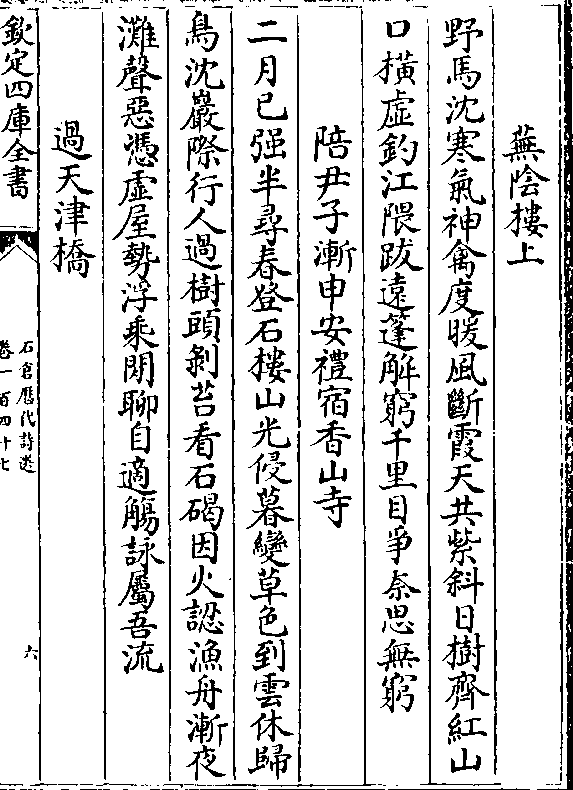 蕪陰樓上
野馬沈寒氣神禽度暖風斷霞天共紫斜日樹齊紅山
口橫虛釣江隈跋遠篷解窮千里目爭奈思無窮
陪尹子漸申安禮宿香山寺
二月已强半尋春登石樓山光侵暮變草色到雲休歸
鳥沈巖際行人過樹頭剝苔看石碣因火認漁舟漸夜
灘聲惡憑虛屋勢浮乘閑聊自適觴詠屬吾流
過天津橋
欽定四庫全書
石倉歷代詩選
卷一百四十七
六